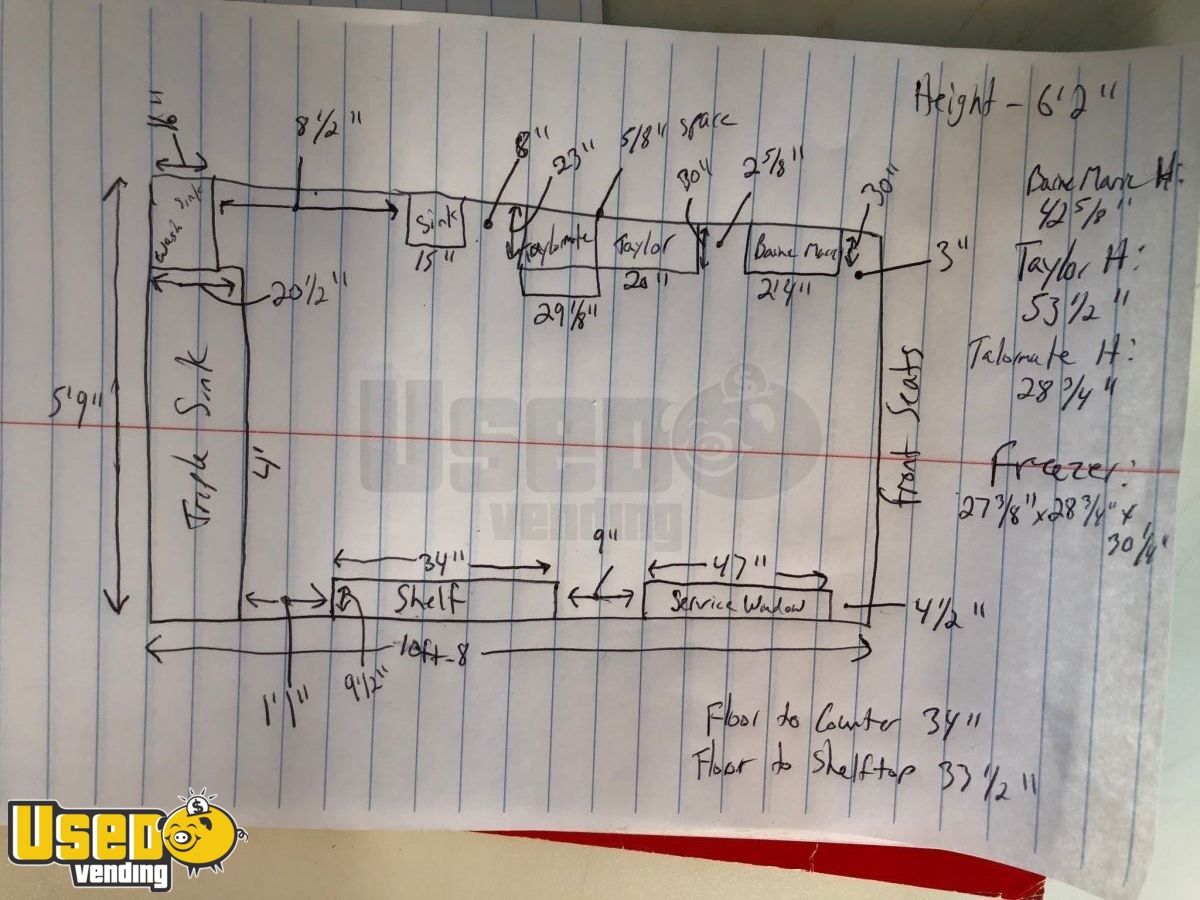 Height - 6'2"
16"
8 1/2"
8"
23"
5/8" space
30"
2 5/8"
30"
Wash Sink
Sink
15"
Taylomate
29 1/8"
Taylor
20"
Baine Marie
24"
3"
Baine Marie H:
42 5/8"
Taylor H:
53 1/2"
Talomate H:
28 3/4"
20 1/2"
5'9"
Triple Sink
4'
Front Seats
Freezer:
27 3/8" x 28 3/4" x
30 1/4"
USED
vending
34"
Shelf
9"
47"
Service Window
4 1/2"
1'1"
9 1/2"
10ft-8
Floor to Counter 34"
Floor to Shelftop 33 1/2"
USED
vending